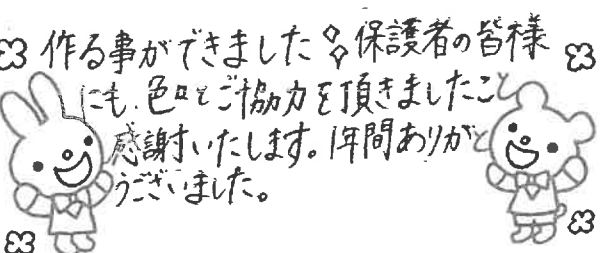 作る事ができました 保護者の皆様
にも、色々とご協力を頂きましたこと
感謝いたします。1年間ありがと
うございました。